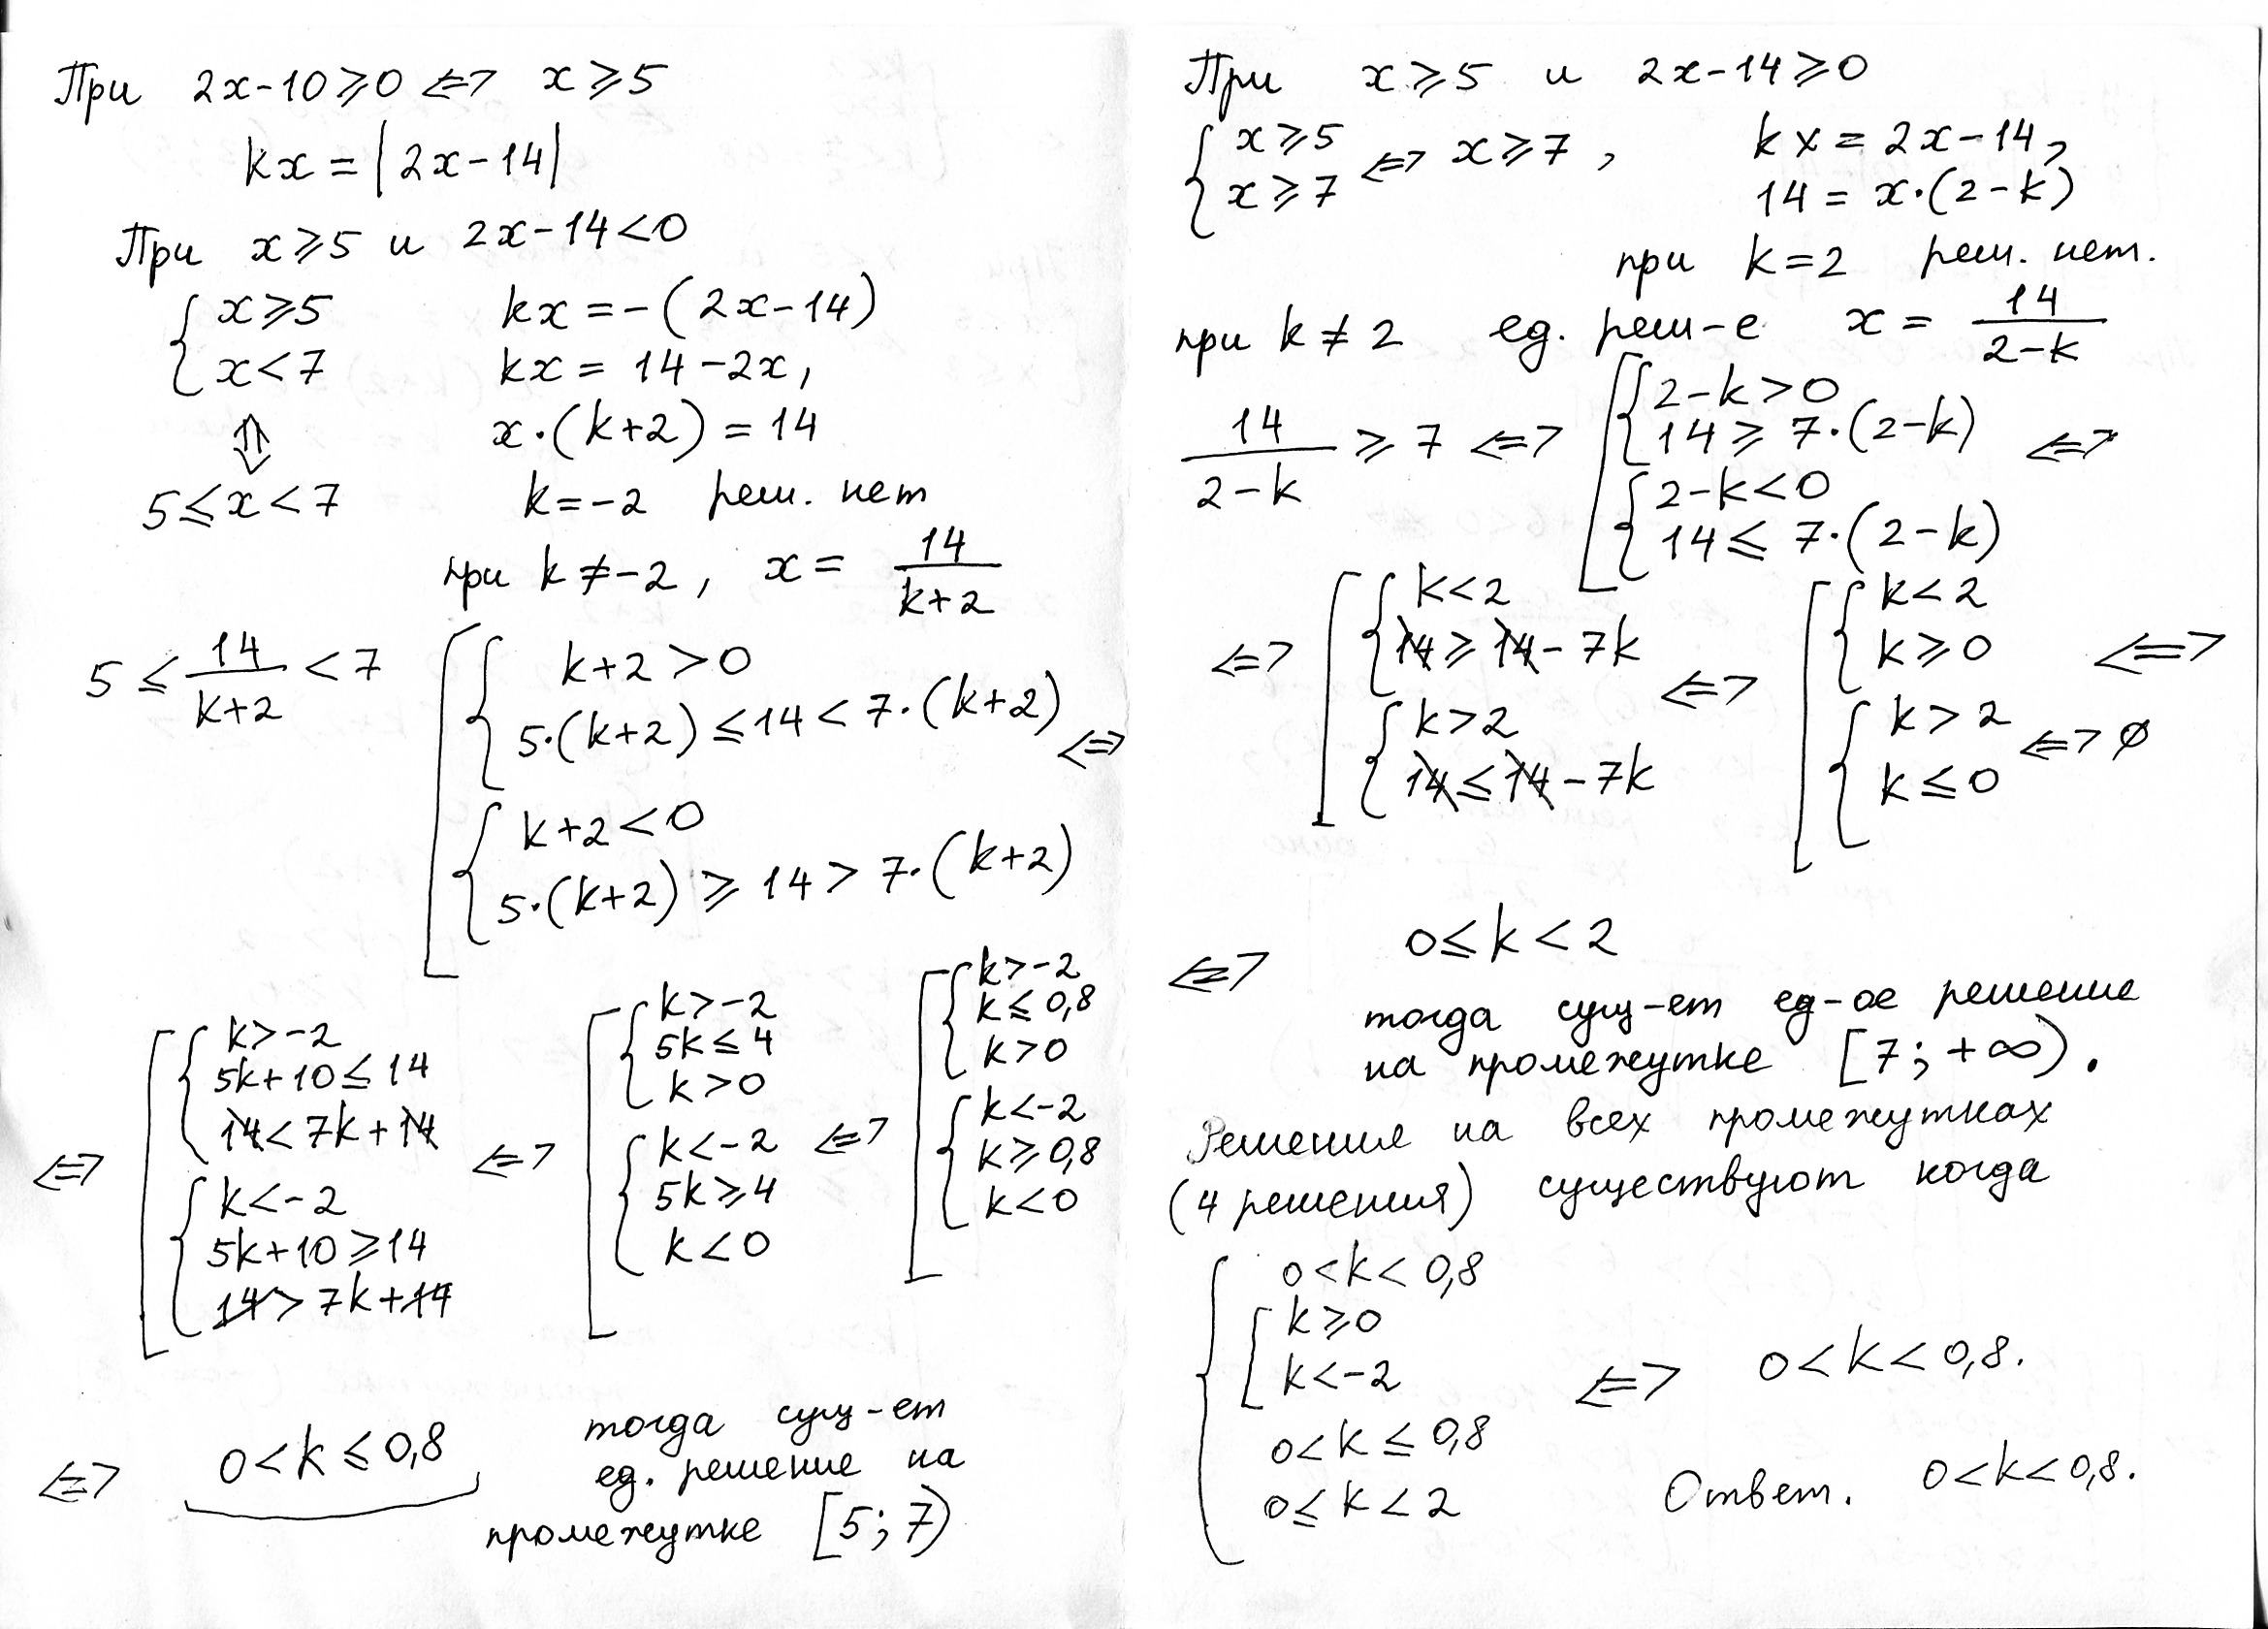 При 2x-10⩾0 <=> x⩾5
kx = |2x-14|
При x⩾5 и 2x-14<0
{ x⩾5
x<7
kx = -(2x-14)
kx = 14-2x,
x·(k+2) = 14
⇕
5≤x<7
k=-2 реш. нет
при k≠-2, x = 14/(k+2)
5 ≤ 14/(k+2) < 7
[ { k+2>0
5·(k+2) ≤ 14 < 7·(k+2)
{ k+2<0
5·(k+2) ⩾ 14 > 7·(k+2)
<=>
<=> [ { k>-2
5k+10≤14
14<7k+14
{ k<-2
5k+10⩾14
14>7k+14
<=> [ { k>-2
5k≤4
k>0
{ k<-2
5k⩾4
k<0
<=> [ { k>-2
k≤0,8
k>0
{ k<-2
k⩾0,8
k<0
<=> 0<k≤0,8
тогда сущ-ет
ед. решение на
промежутке [5;7)
При x⩾5 и 2x-14⩾0
{ x⩾5
x⩾7 <=> x⩾7,
kx = 2x-14,
14 = x·(2-k)
при k=2 реш. нет.
при k≠2 ед. реш-е x = 14/(2-k)
14/(2-k) ⩾ 7 <=> [ { 2-k>0
14⩾7·(2-k)
{ 2-k<0
14≤7·(2-k)
<=>
<=> [ { k<2
14⩾14-7k
{ k>2
14≤14-7k
<=> [ { k<2
k⩾0
{ k>2
k≤0 <=> ∅
<=>
<=> 0≤k<2
тогда сущ-ет ед-ое решение
на промежутке [7;+∞).
Решения на всех промежутках
(4 решения) существуют когда
{ 0<k<0,8
[ k⩾0
k<-2
0<k≤0,8
0≤k<2
<=> 0<k<0,8.
Ответ. 0<k<0,8.